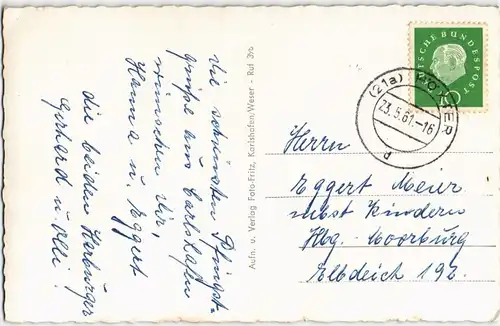 Die schönsten Pfingst-
grüße aus Carlshafen
wünschen Dir,
Hanna u. Eggert
die beiden Harburger
Gerhard u. Olli!
Aufn. u. Verlag Foto-Fritz, Karlshafen/Weser - Ruf 396
DEUTSCHE BUNDESPOST
10
(21a)
23.5.61.-16
d
Herrn
Eggert Meier
nebst Kindern
Hbg.-Moorburg
Elbdeich 192.